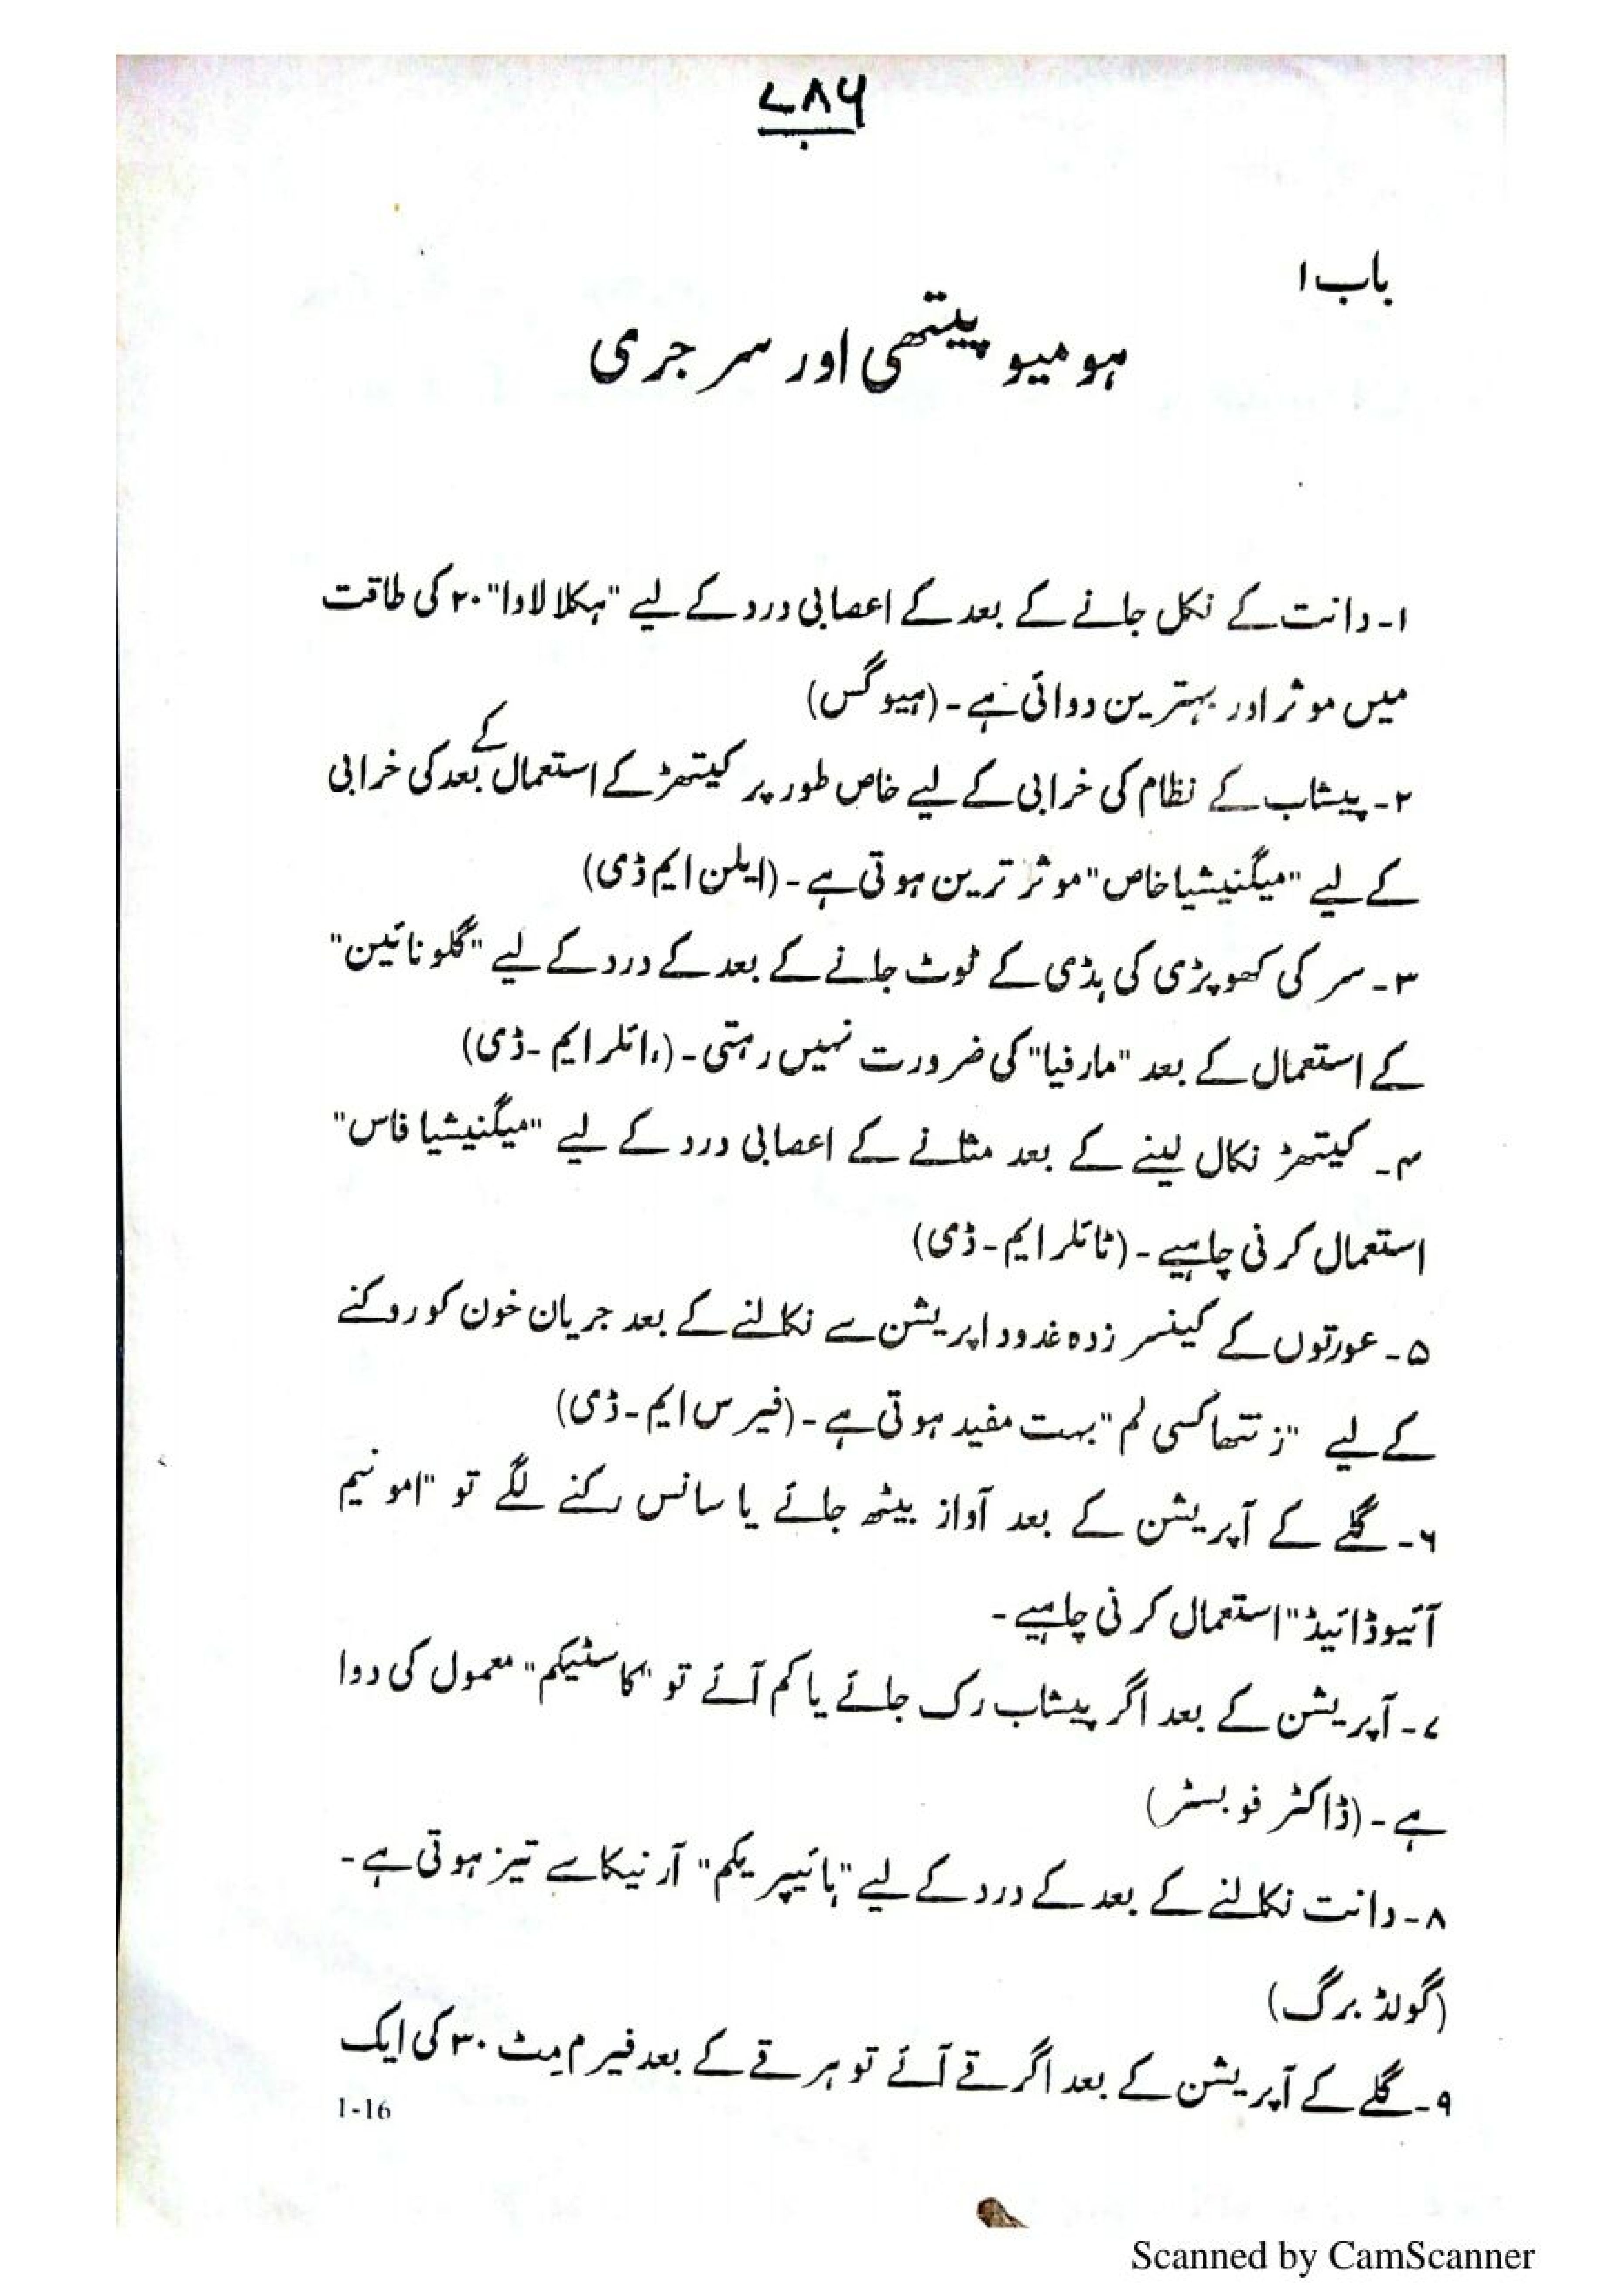 ۷۸۶
باب ۱
ہومیوپیتھی اور سرجری
۱۔ دانت کے نکل جانے کے بعد کے اعصابی درد کے لیے "ہکلا لاوا" ۲۰ کی طاقت
میں موثر اور بہترین دوائی ہے۔ (ہیوگس)
۲۔ پیشاب کے نظام کی خرابی کے لیے خاص طور پر کیتھڑ کے استعمال کے بعد کی خرابی
کے لیے "میگنیشیا خاص" موثر ترین ہوتی ہے۔ (ایلن ایم ڈی)
۳۔ سر کی کھوپڑی کی ہڈی کے ٹوٹ جانے کے بعد کے درد کے لیے "گلونائین"
کے استعمال کے بعد "مارفیا" کی ضرورت نہیں رہتی۔ (ائلر ایم۔ڈی)
۴۔ کیتھڑ نکال لینے کے بعد مثانے کے اعصابی درد کے لیے "میگنیشیا فاس"
استعمال کرنی چاہیے۔ (ٹائلر ایم۔ڈی)
۵۔ عورتوں کے کینسر زدہ غدود اپریشن سے نکالنے کے بعد جریان خون کو روکنے
کے لیے "زنتھاکسی لم" بہت مفید ہوتی ہے۔ (فیرس ایم۔ڈی)
۶۔ گلے کے آپریشن کے بعد آواز بیٹھ جائے یا سانس رکنے لگے تو "امونیم
آئیوڈائیڈ" استعمال کرنی چاہیے۔
۷۔ آپریشن کے بعد اگر پیشاب رک جائے یا کم آئے تو "کاسٹیکم" معمول کی دوا
ہے۔ (ڈاکٹر فوبسٹر)
۸۔ دانت نکالنے کے بعد کے درد کے لیے "ہائیپریکم" آرنیکا سے تیز ہوتی ہے۔
(گولڈ برگ)
۹۔ گلے کے آپریشن کے بعد اگر قے آئے تو ہر قے کے بعد فیرم مِٹ ۳۰ کی ایک
1-16
Scanned by CamScanner